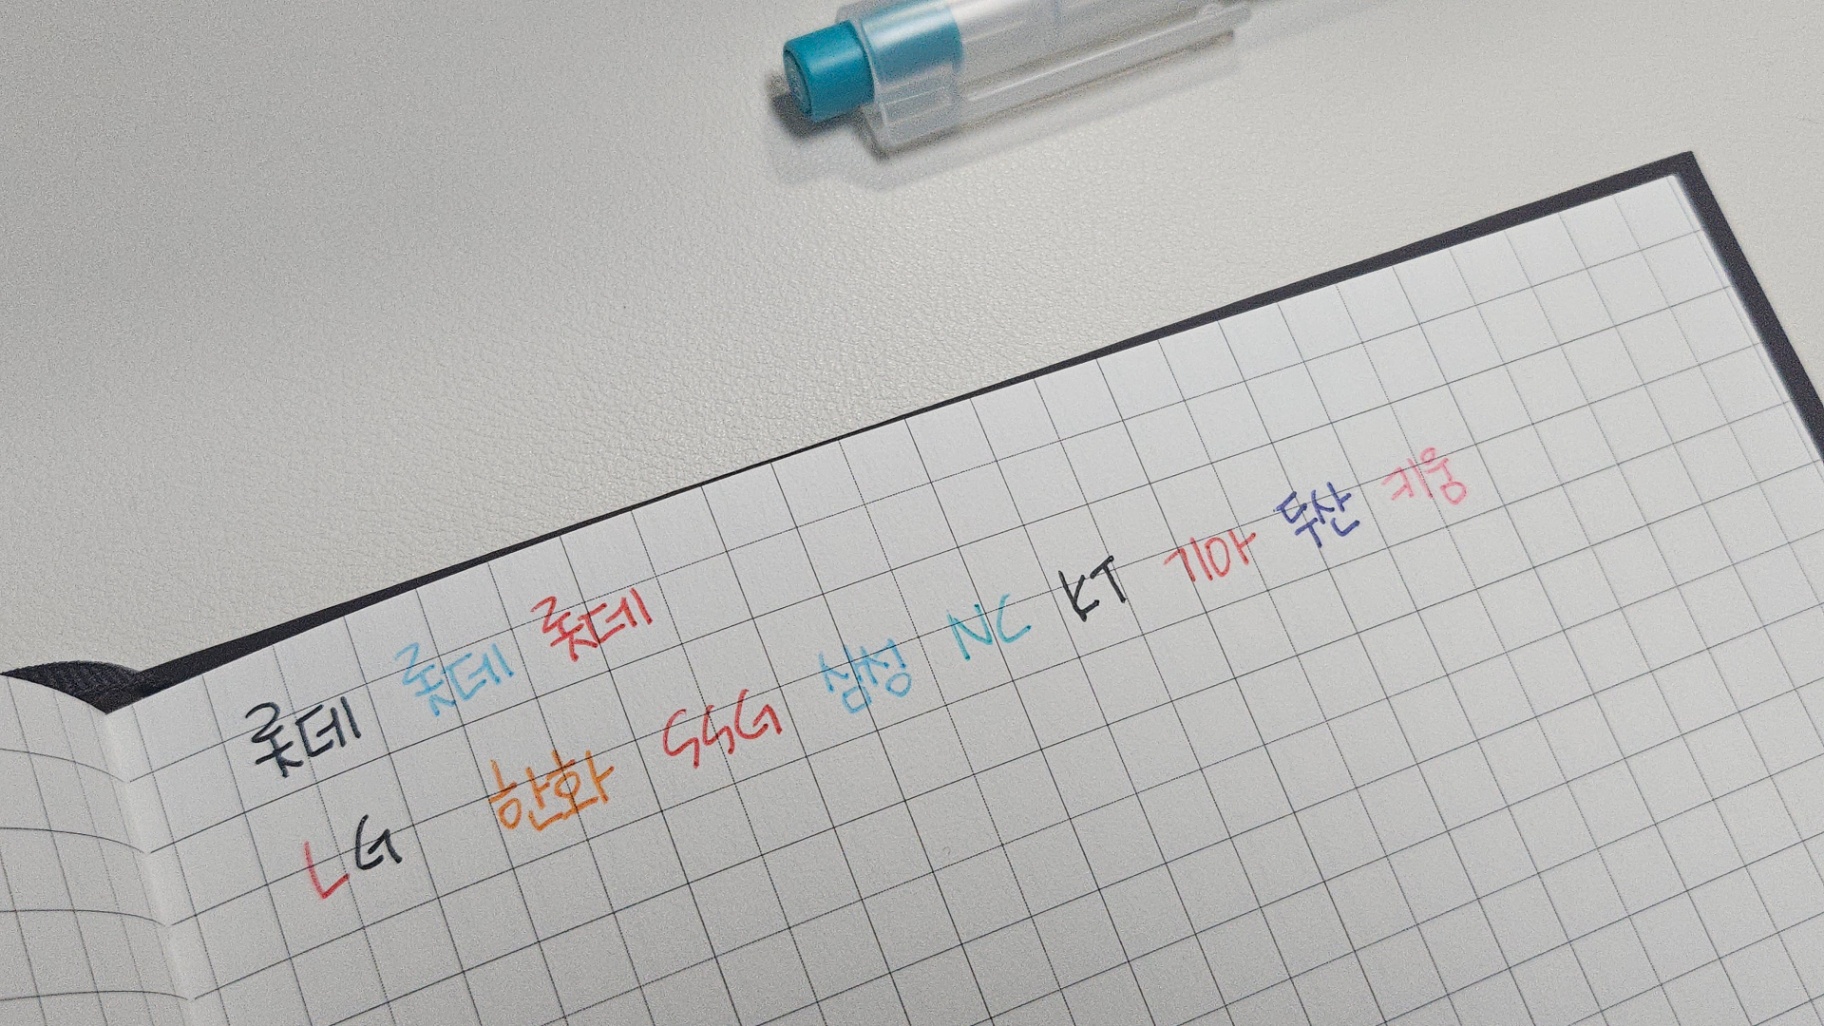 롯데 롯데 롯데
LG 한화 SSG 삼성 NC KT 기아 두산 키움